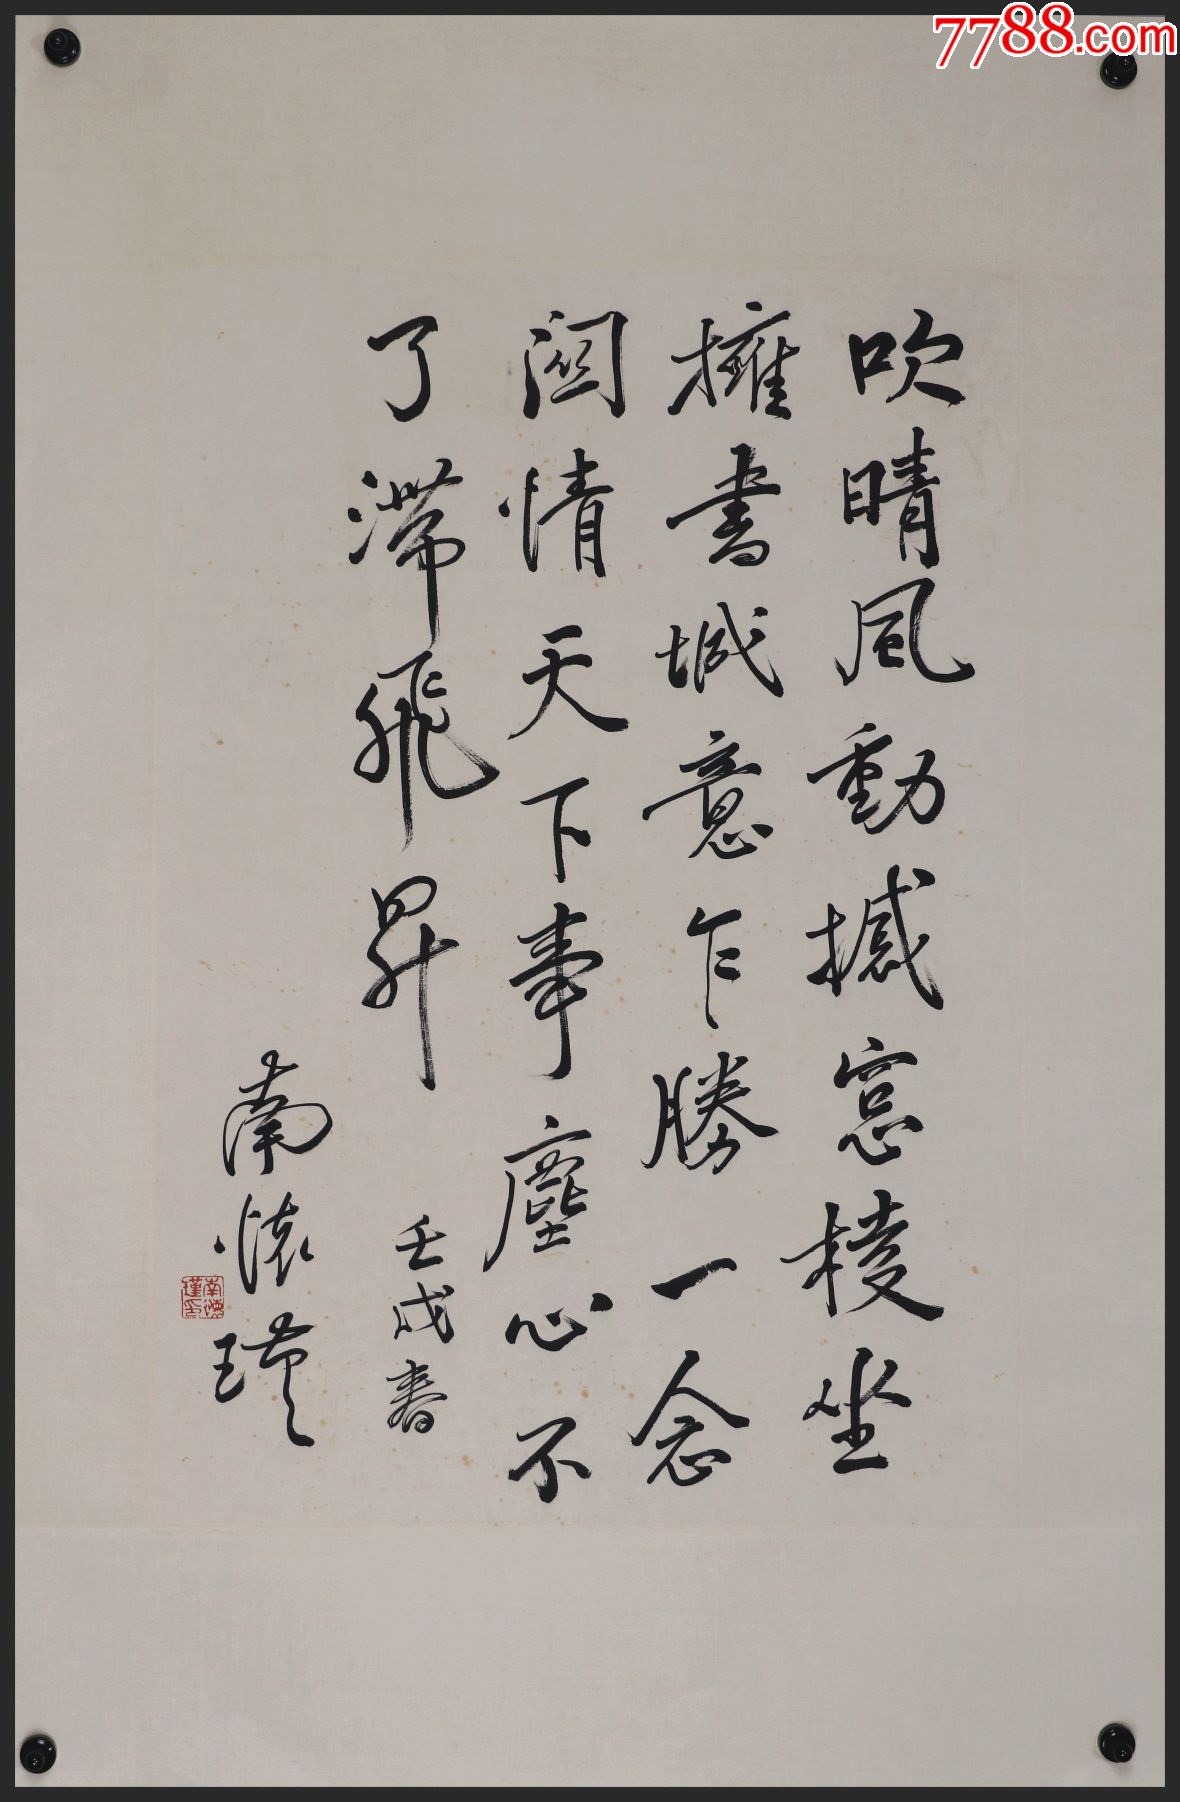 吹晴風動撼窓棱坐
擁書城意乍勝一念
関情天下事塵心不
了滞飛昇
壬戌春
南懷瑾
南懷瑾印
7788.com